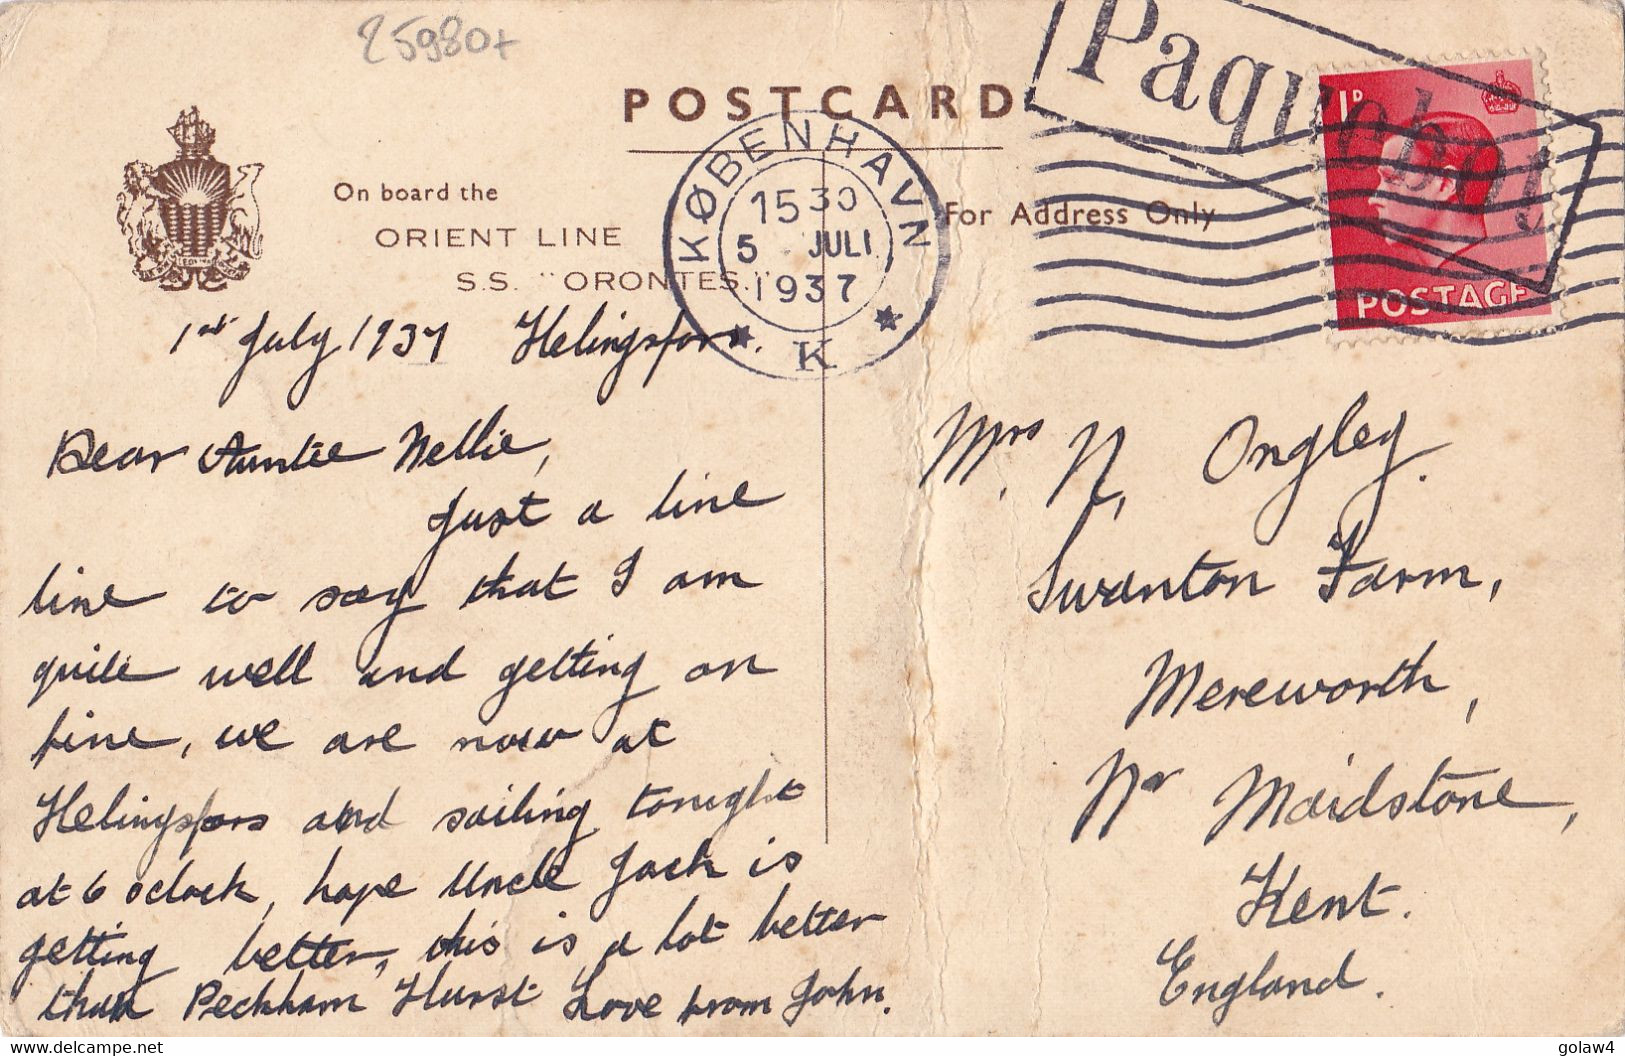 25980+
POSTCARD
Paquebot
1D
POSTAGE
KØBENHAVN
1530
5 JULI
1937
K
On board the
ORIENT LINE
S.S. "ORONTES."
For Address Only
1st July 1937 Helingsfors.
Dear Auntie Nellie,
Just a line
line to say that I am
quite well and getting on
fine, we are now at
Helingsfors and sailing tonight
at 6 oclock, hope Uncle Jack is
getting better, this is a lot better
than Peckham Hurst Love from John.
Mrs N. Ongley.
Swanton Farm,
Mereworth,
Nr Maidstone,
Kent.
England.
www.delcampe.net
golaw4